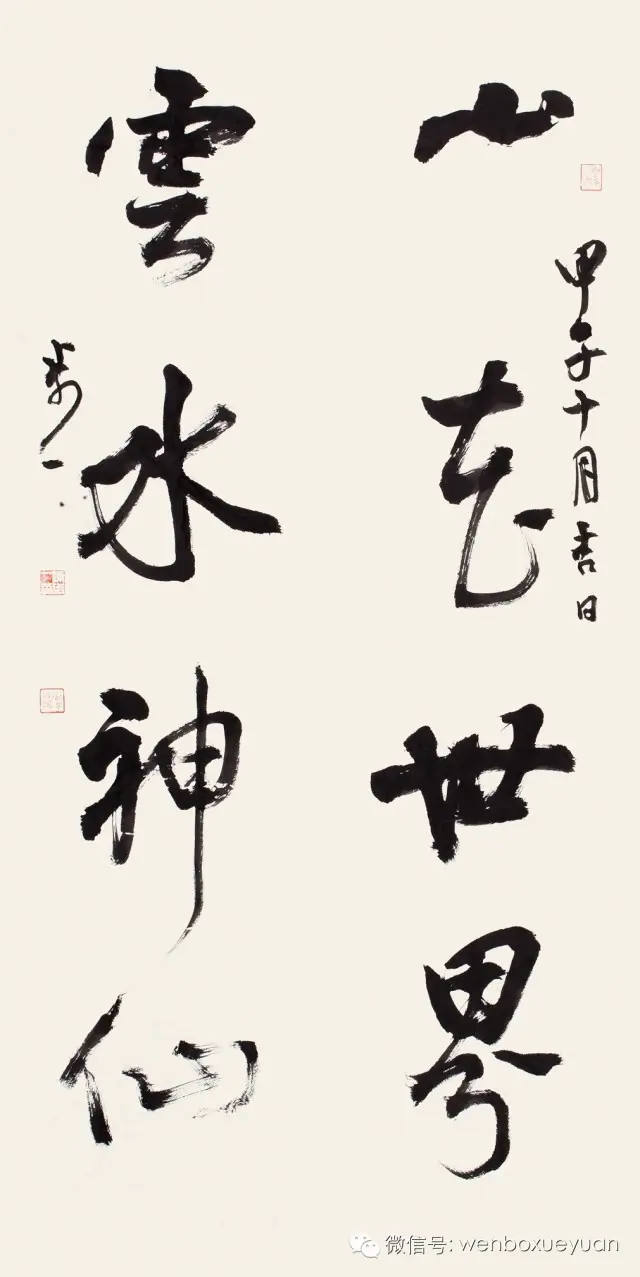 甲午十月吉日
山花世界
雲水神仙
微信号: wenboxueyuan